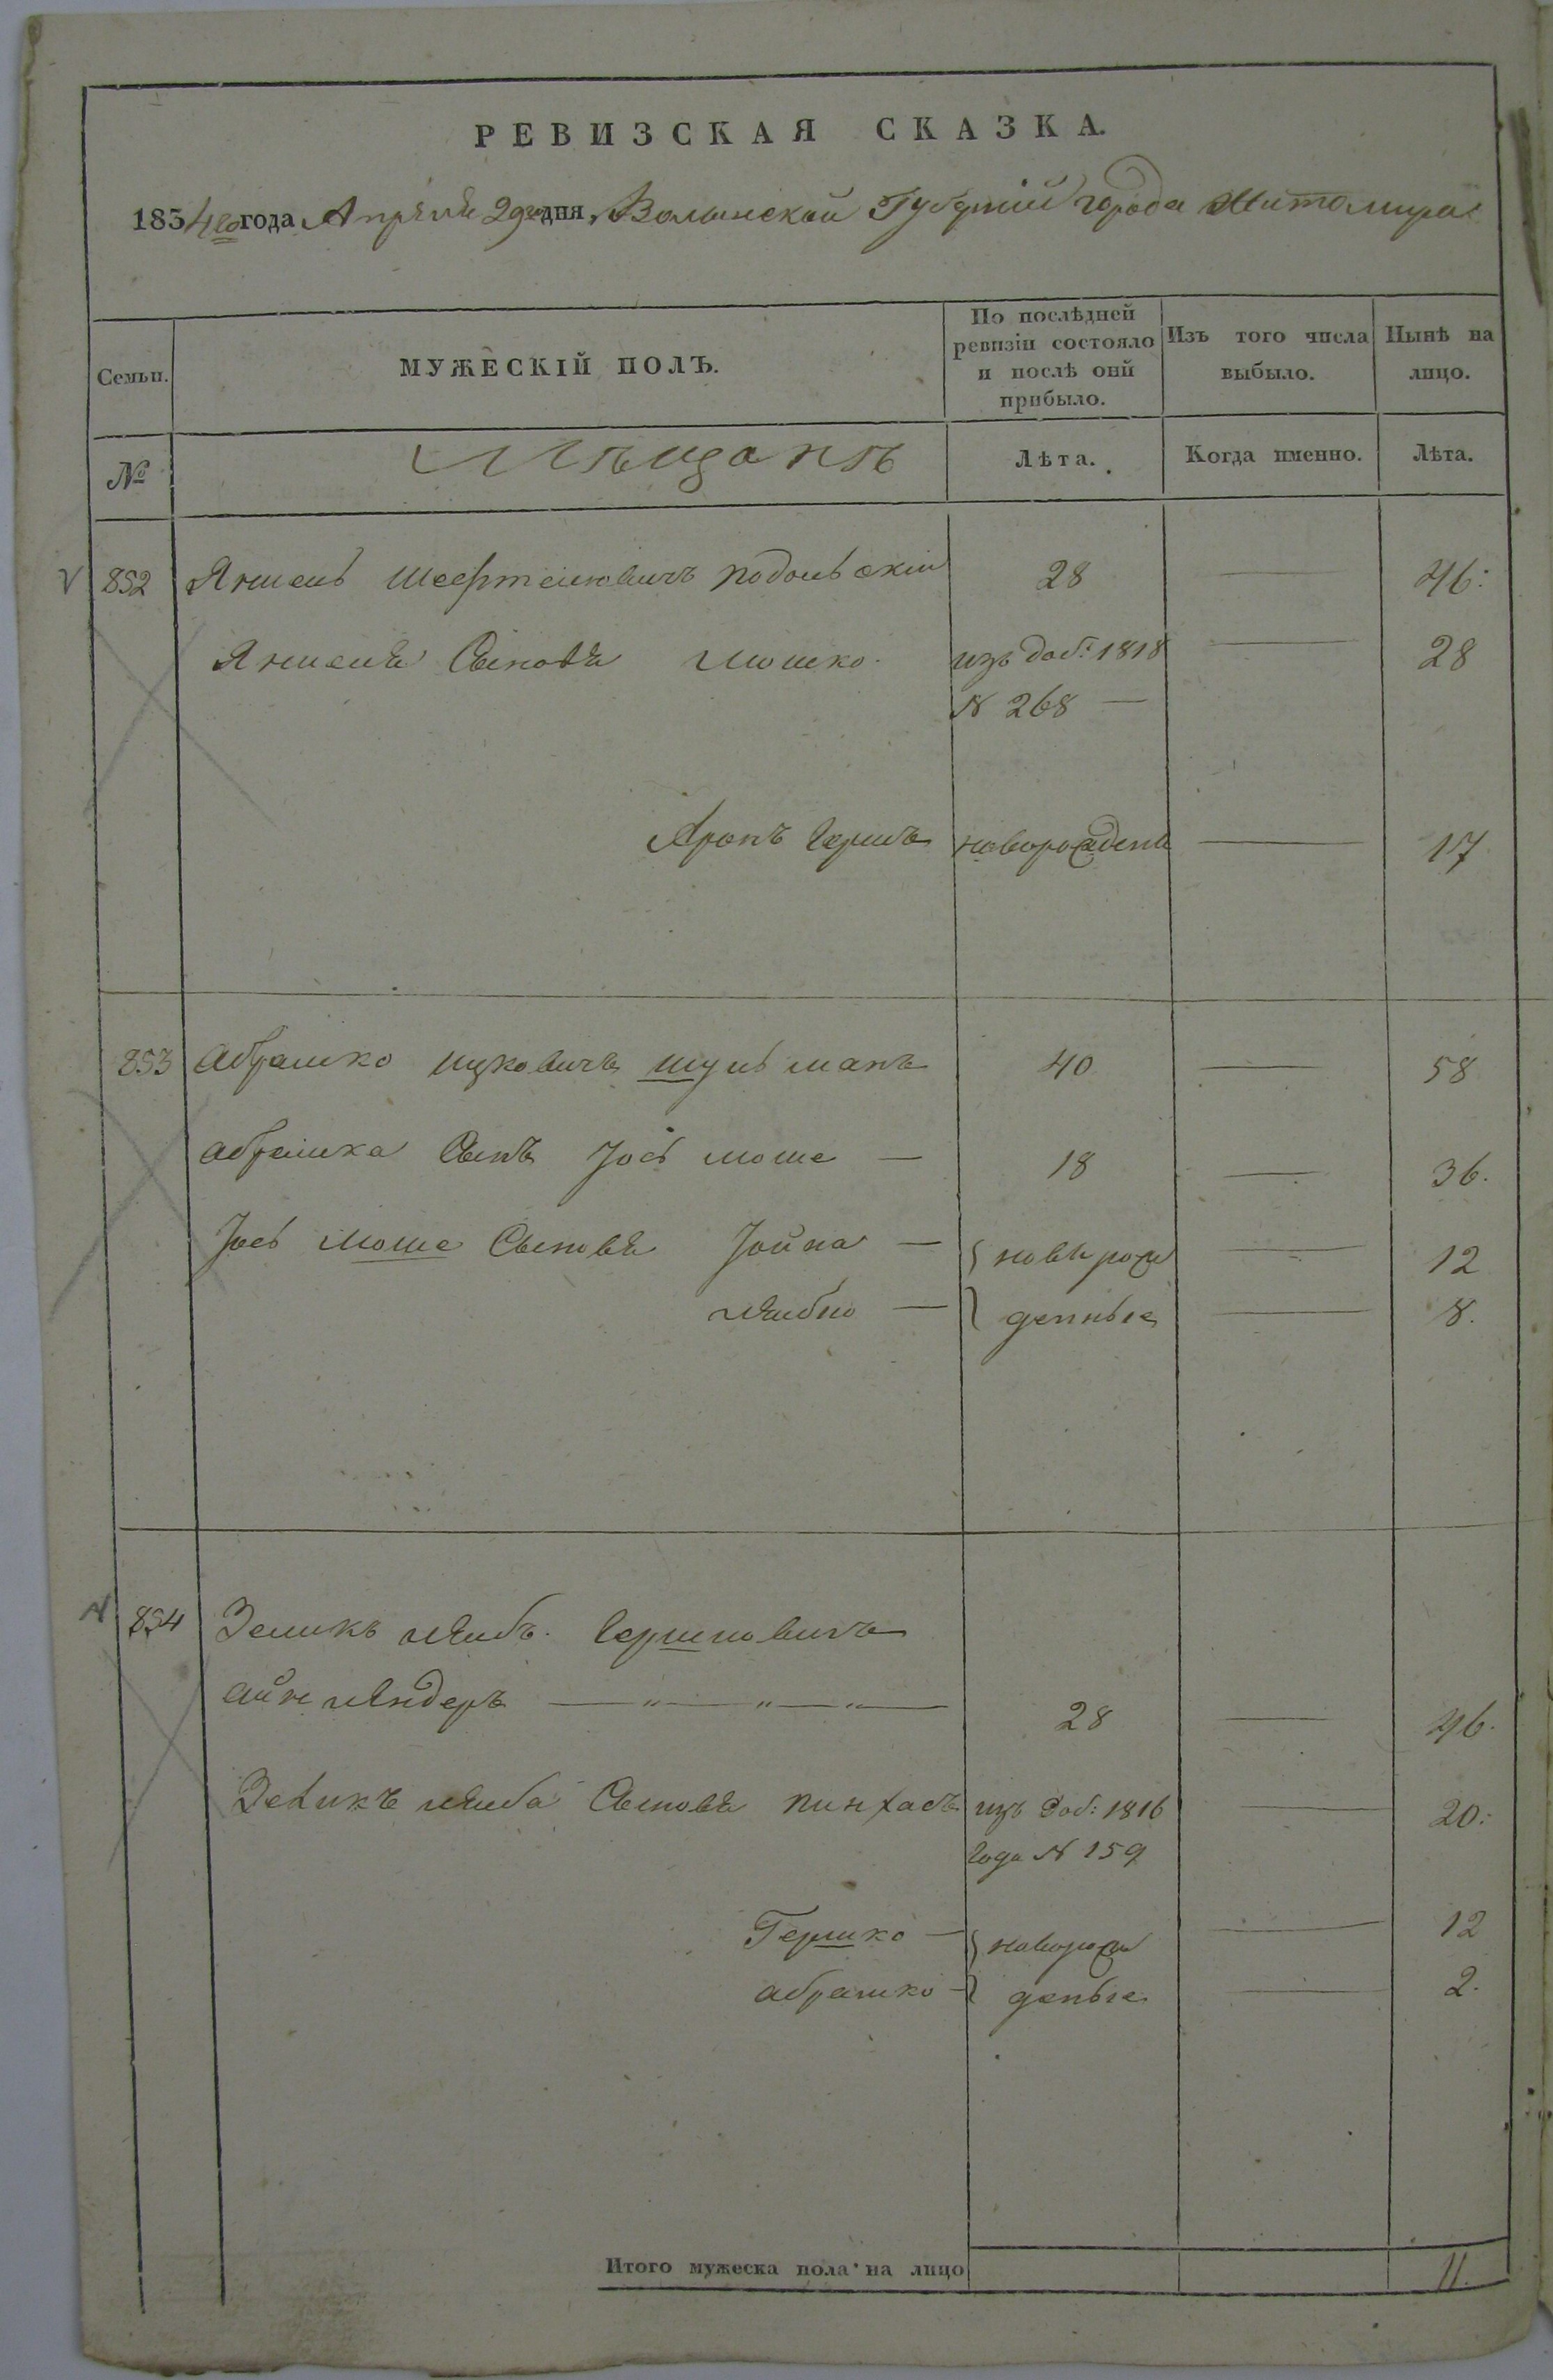 РЕВИЗСКАЯ СКАЗКА.
1834го года Апреля 29го дня, Волынской Губернiи города Житомира
Семьи.
МУЖЕСКІЙ ПОЛЪ.
По послѣдней ревизіи состояло и послѣ оній прибыло.
Изъ того числа выбыло.
Нынѣ на лицо.
№
Мѣщанъ
Лѣта.
Когда именно.
Лѣта.
852 Яншель подольскій 28 — 46:
Яншеля Сыновя Мошко. изъ доб: 1818 — 28
N 268 —
Аронъ Гершъ новорожден — 17
853 Абрамко Ицковичъ Шульманъ 40 — 58
Абрамка Сынъ Іось Моше — 18 — 36.
Іось Моше Сыновя Іойна — новорож — 12
Лейбко — денные — 8.
854 Зеликъ Лейбъ Гершковичъ
Айнлендеръ — " — " — " — 28 — 46.
Зеликъ Лейба Сыновя Пинхасъ изъ доб: 1816 — 20:
года N 159
Гершко — новорож — 12
Абрамко — деные — 2.
Итого мужеска пола на лицо 11.